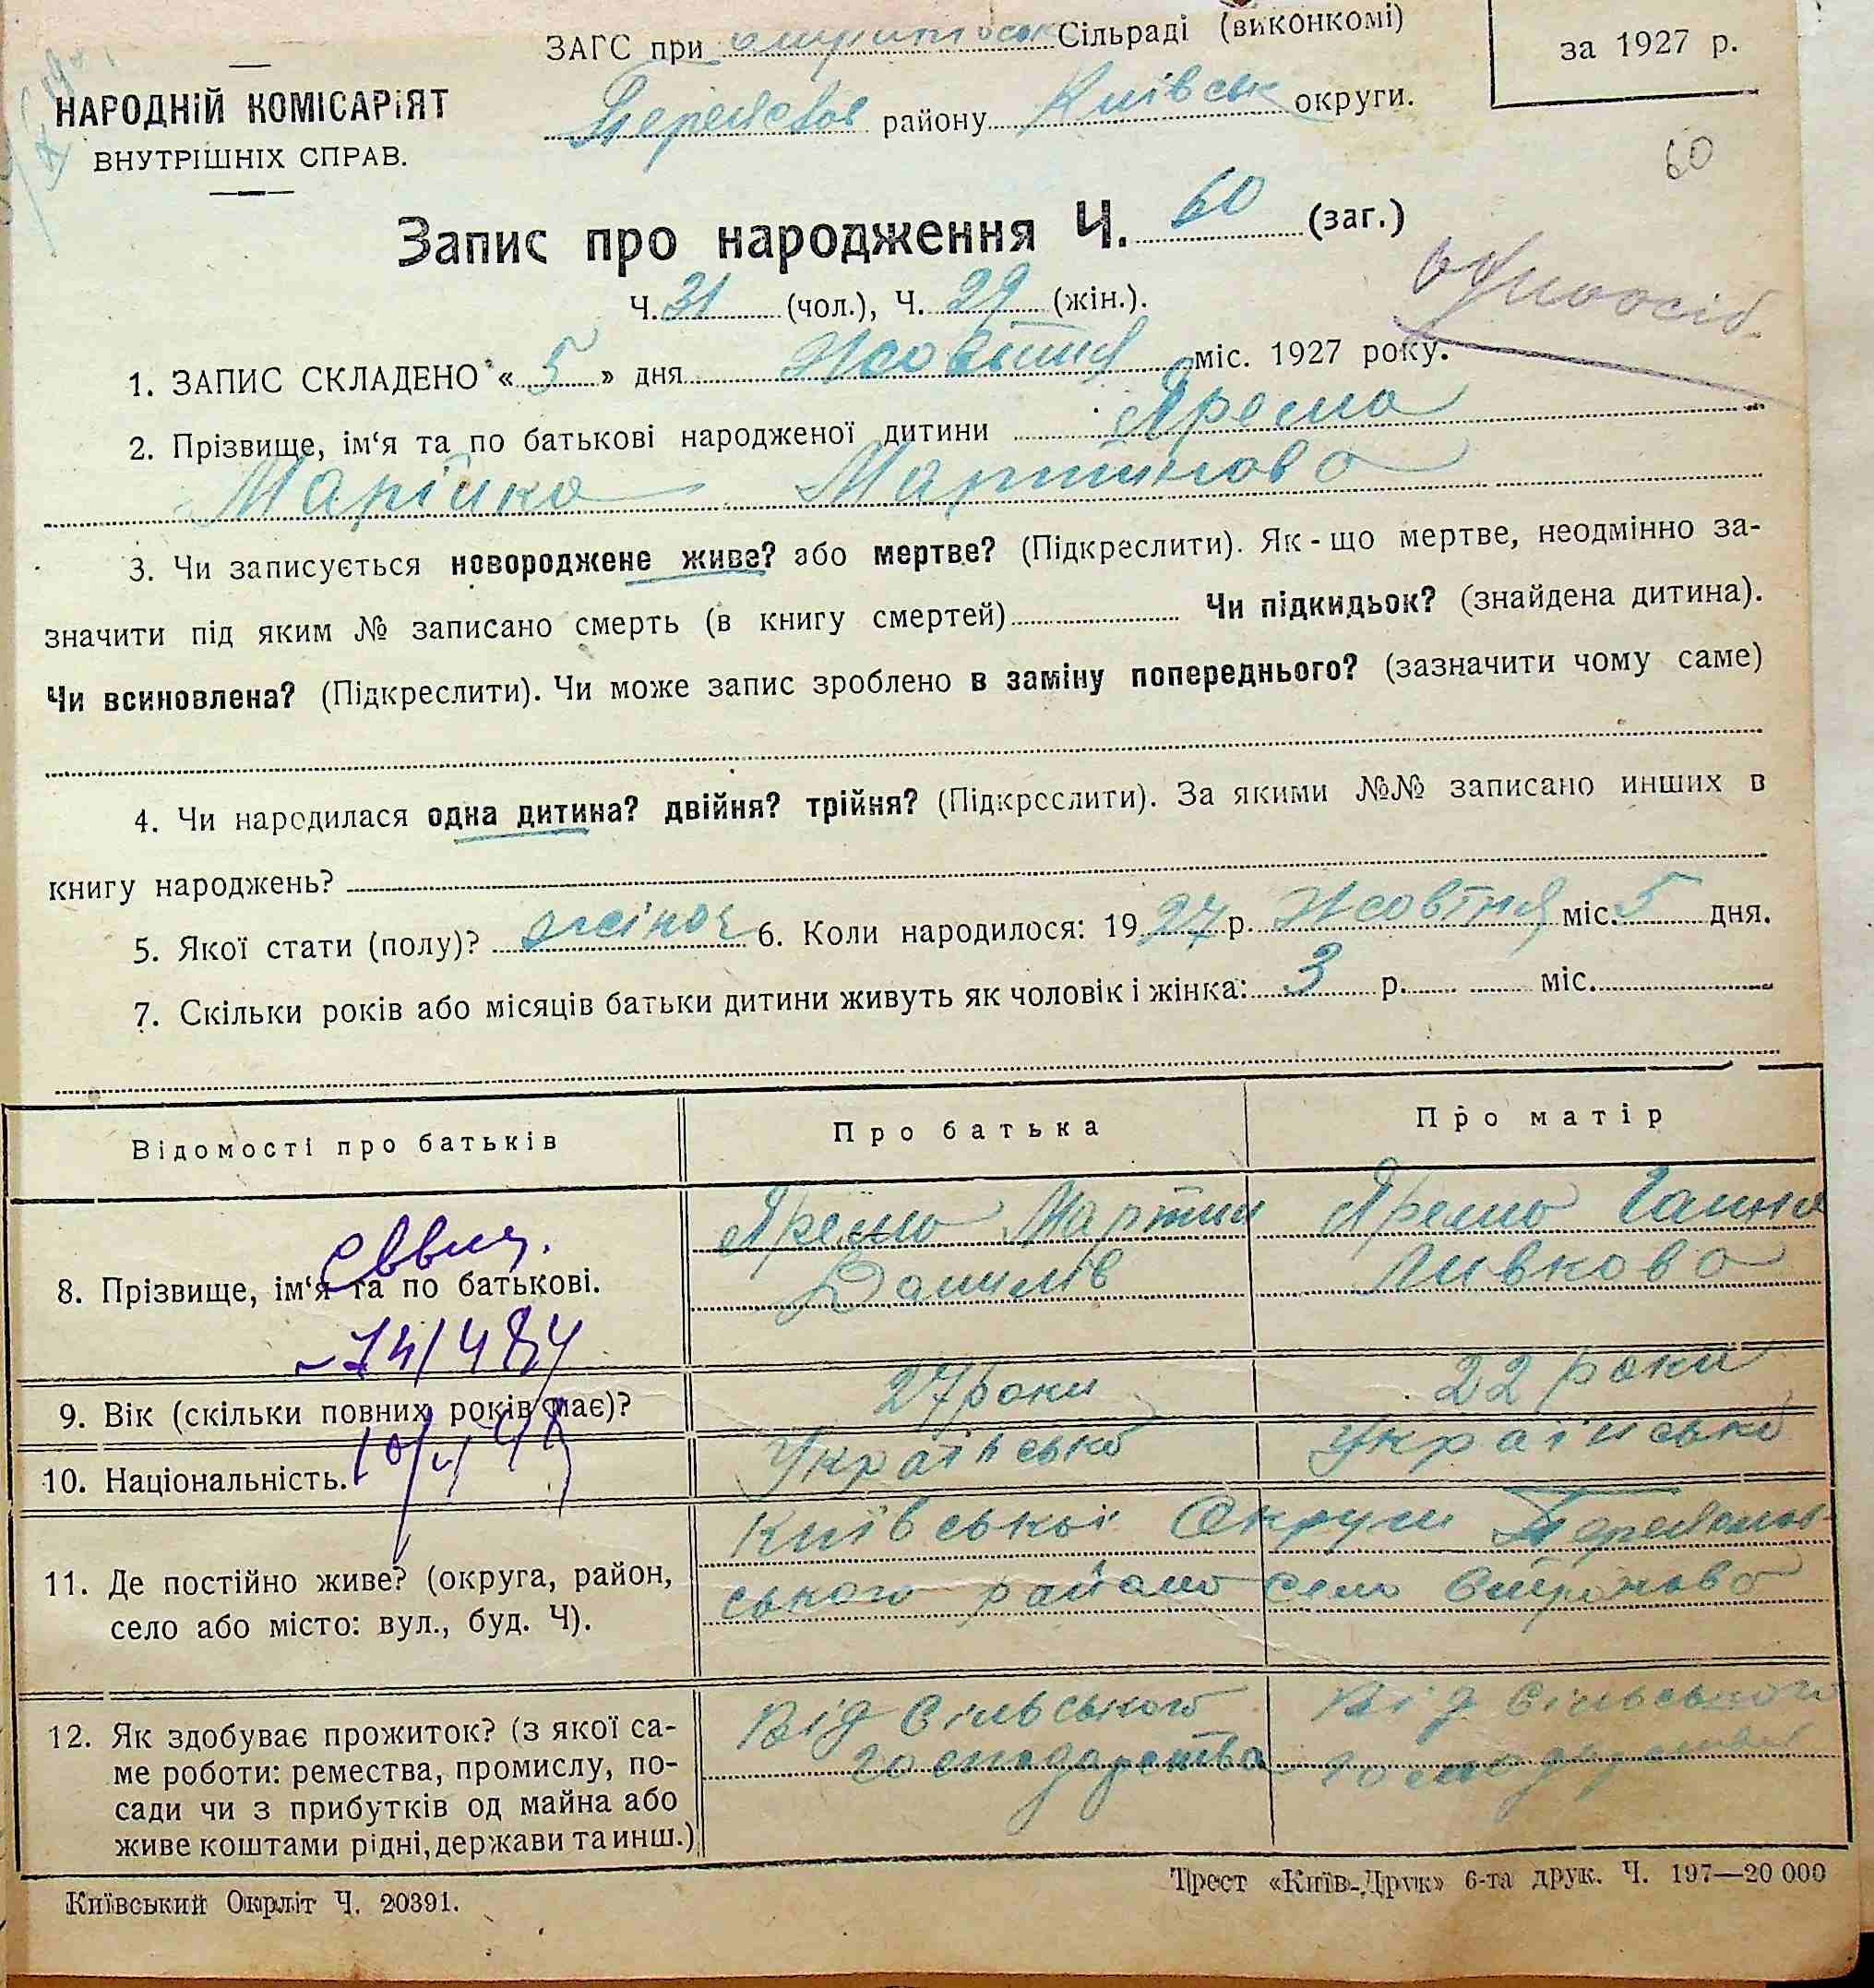 ЗАГС при Сільраді (виконкомі)
за 1927 р.
НАРОДНІЙ КОМІСАРІЯТ
ВНУТРІШНІХ СПРАВ.
Переяслов району Київськ округи.
60
Запис про народження Ч. 60 (заг.)
Ч. 31 (чол.), Ч. 29 (жін.).
1. ЗАПИС СКЛАДЕНО « 5 » дня Жовтня міс. 1927 року.
2. Прізвище, ім‘я та по батькові народженої дитини Ярема
Марійка Мартинова
3. Чи записується новороджене живе? або мертве? (Підкреслити). Як-що мертве, неодмінно за-
значити під яким № записано смерть (в книгу смертей) Чи підкидьок? (знайдена дитина).
Чи всиновлена? (Підкреслити). Чи може запис зроблено в заміну попереднього? (зазначити чому саме)
4. Чи народилася одна дитина? двійня? трійня? (Підкреслити). За якими №№ записано инших в
книгу народжень?
5. Якої стати (полу)? жіноч 6. Коли народилося: 19 27 р. Жовтня міс. 5 дня.
7. Скільки років або місяців батьки дитини живуть як чоловік і жінка: 3 р. міс.
Відомості про батьків Про батька Про матір
8. Прізвище, ім‘я та по батькові.
Ярема Мартин
Данилів
Ярема Ганна
Ливкова
9. Вік (скільки повних років має)? 27 роки 22 роки
10. Національність. Українська Українська
11. Де постійно живе? (округа, район,
село або місто: вул., буд. Ч).
Київської Округи
ського району село
12. Як здобуває прожиток? (з якої са-
ме роботи: ремества, промислу, по-
сади чи з прибутків од майна або
живе коштами рідні, держави та инш.)
Від сільського
господарства
Від сільського
господарства
Київський Окрліт Ч. 20391.
Трест «Київ-Друк» 6-та друк. Ч. 197—20 000